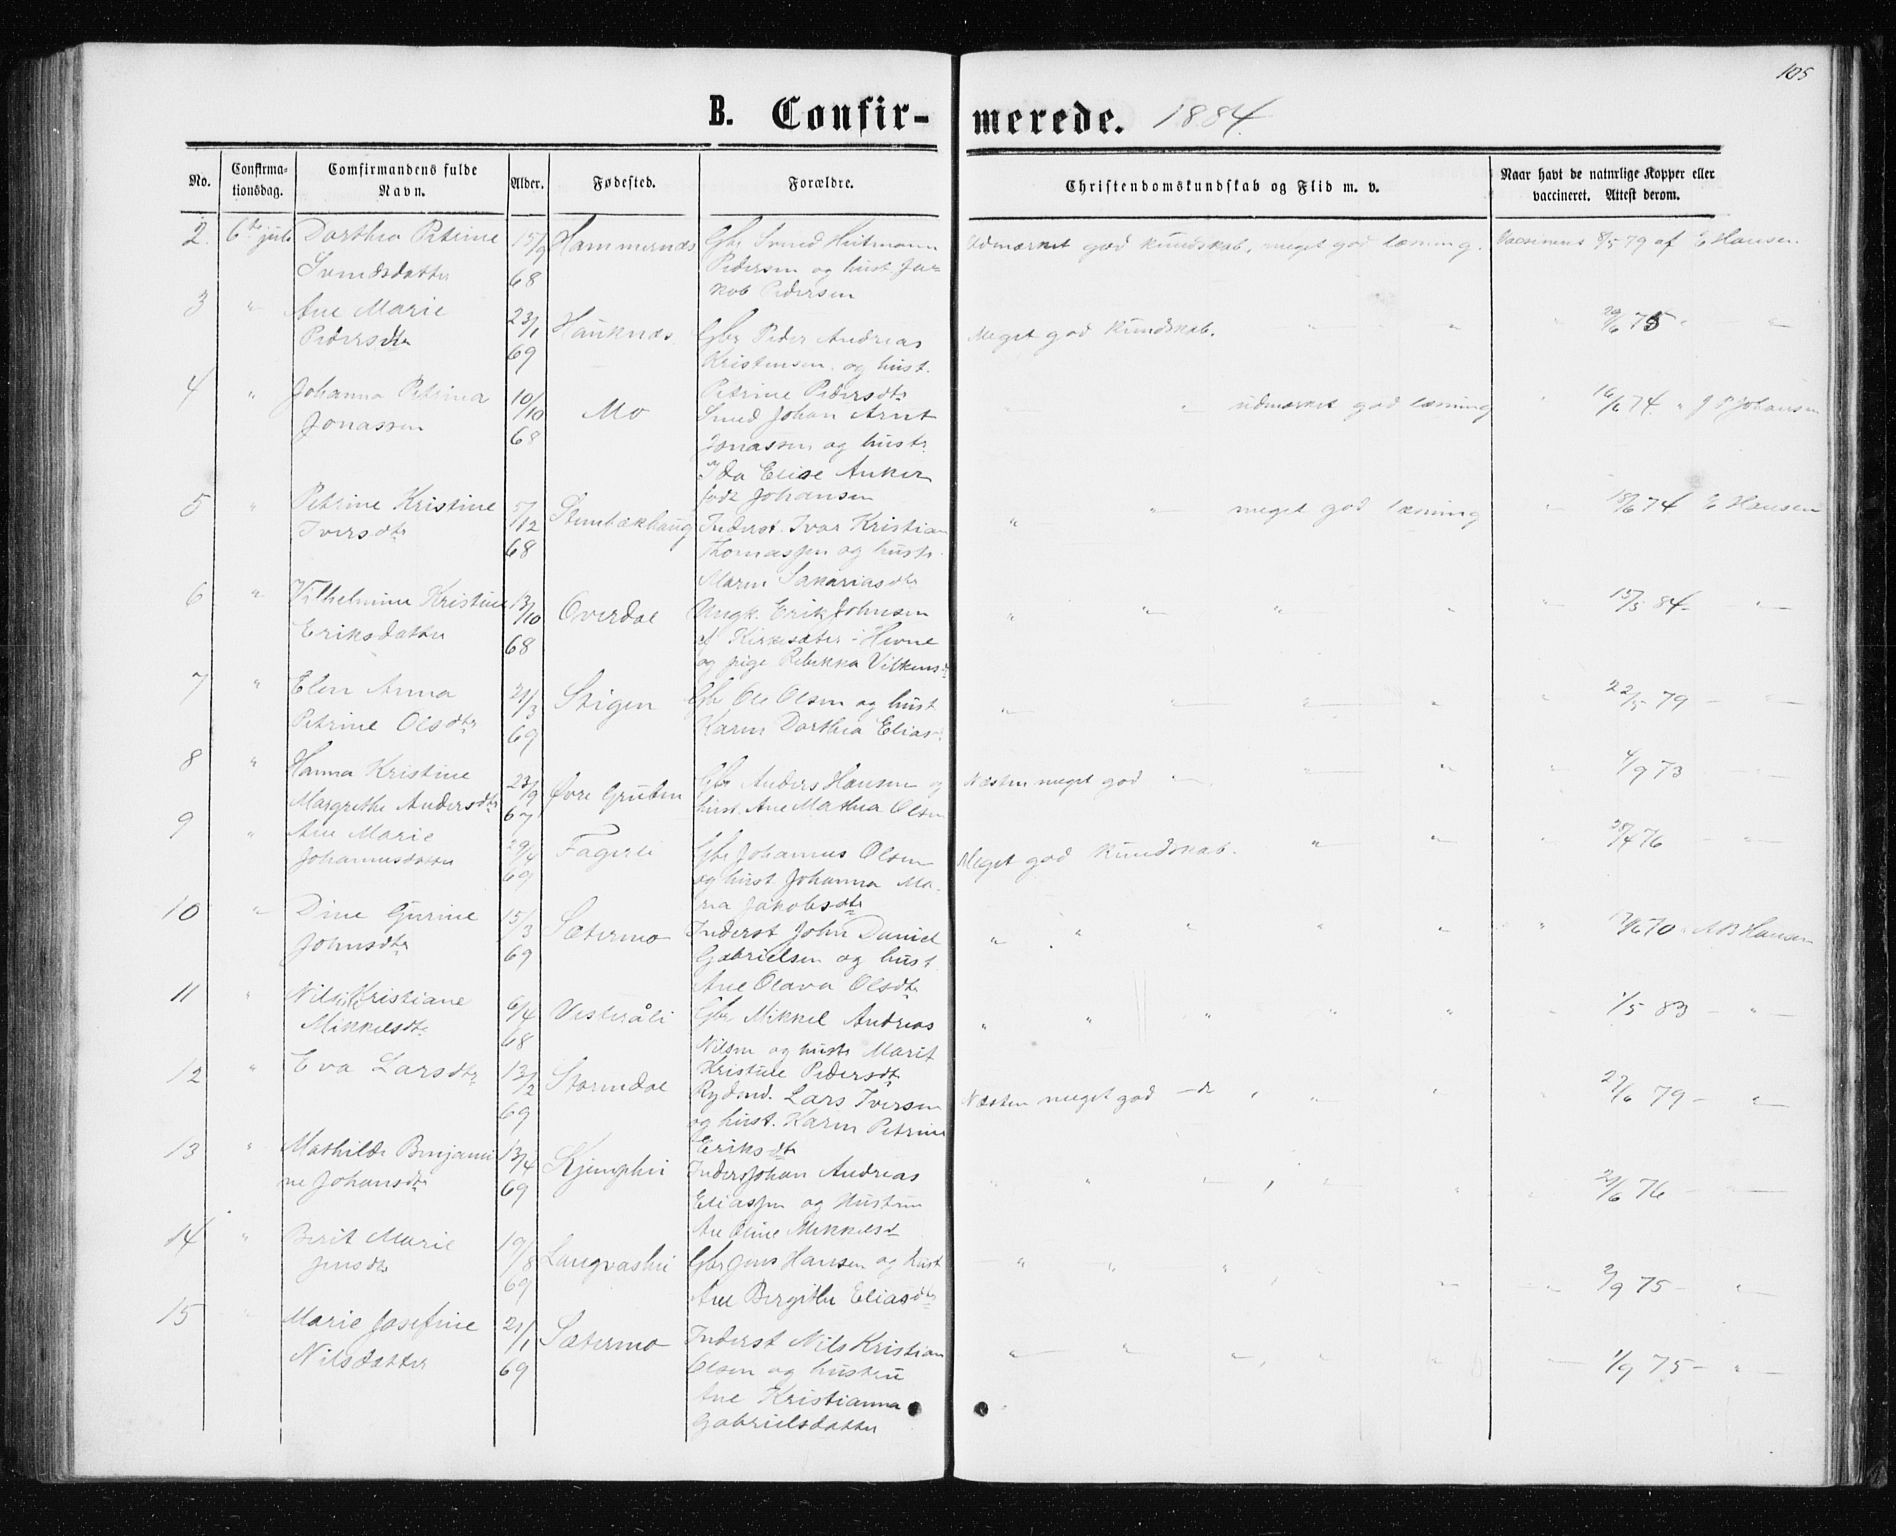 105
B. Confir- merede. 1884.
No. Confirma-tionsdag. Comfirmandens fulde Navn. Alder. Fødested. Forældre. Christendomskundskab og Flid m. v. Naar havt de naturlige Kopper eller vaccineret. Attest derom.
2. 6te juli Dorthea Petrine 15/9 Hammernæs Gbr Svend Heitmann Udmærket god kundskab, meget god læsning. Vaccineret 8/5 79 af E Hansen.
Svendsdatter 68 Pedersen og hust. Ja-
kob Pedersen
3 " Ane Marie 23/1 Hauknæs Gbr Peder Andreas Meget god kundskab. " " " 29/6 75 " "
Pedersdtr 69 Kristensen og hust.
Petrine Pedersdtr
4 " Johanna Petrina 10/10 Mo Smed Johan Arnt " " udmærket god læsning " 16/6 74 " J P Johansen
Jonassen 68 Jonassen og hustr
Ida Elise Anker
født Johansen
5 " Petrine Kristine 5/12 Stenbækhaug Inderst. Ivar Kristian " " meget god læsning " 18/6 74 E Hansen
Iversdtr 68 Thomassen og hustr.
Maren Sakariasdtr
6 " Vilhelmine Kristine 13/10 Overdal Ungk. Erik Johnsen " " " " " 15/5 84 - "
Eriksdatter 68 af Kirksæter i Hevne
og pige Rebekka Vilkensdtr
7 " Elen Anna 21/3 Stigen Gbr Ole Olsen og hust " " " " " 22/5 79 - "
Petrine Olsdtr 69 Karen Dorthea Eliasdtr
8 " Hanna Kristine 23/9 Øvre Gruben Gbr Anders Hansen og Næsten meget god " " " " 4/9 73 - "
Margrethe Andersdtr 67 hust. Ane Mathea Olsen
9 " Ane Marie 29/4 Fagerli Gbr Johannes Olsen Meget god kundskab. " " " 28/4 76 - "
Johannesdatter 69 og hust Johanna Ma-
ria Jakobsdtr
10 " Dine Gurine 15/3 Sætermo Inderst John Daniel " " " " " " 12/6 70 " A B Hansen
Johnsdtr 69 Gabrielsen og hust.
Ane Olava Olsdtr
11 " Nilsine Kristiane 6/4 Vesteråli Gbr Mikkel Andreas " " " " " " 1/5 83 - " -
Mikkelsdtr 68 Nilsen og hustr Marit
Kristine Pedersdtr
12 " Eva Larsdtr 13/2 Stormdal Rydnd. Lars Iversen Næsten meget god - do , " " " 27/6 79 - "
69 og hust. Karen Petrine
Eriksdtr
13 " Mathilde Benjami- 13/4 Kjemphei Inders Johan Andreas " " " , " " " 2/6 76 - "
ne Johansdtr 69 Eliassen og Hustru
Ane Oline Mikkelsdtr
14 " Berit Marie 19/8 Langvashei Gbr Jens Hansen og hust " " " , " " " 2/9 75 - "
Jensdtr 69 Ane Birgithe Eliasdtr
15 " Marie Josefine 21/1 Sætermo Inderst Nils Kristian " " " , " " " 1/9 75 - "
Nilsdatter 69 Olsen og hustru
Ane Kristianna
Gabrielsdatter